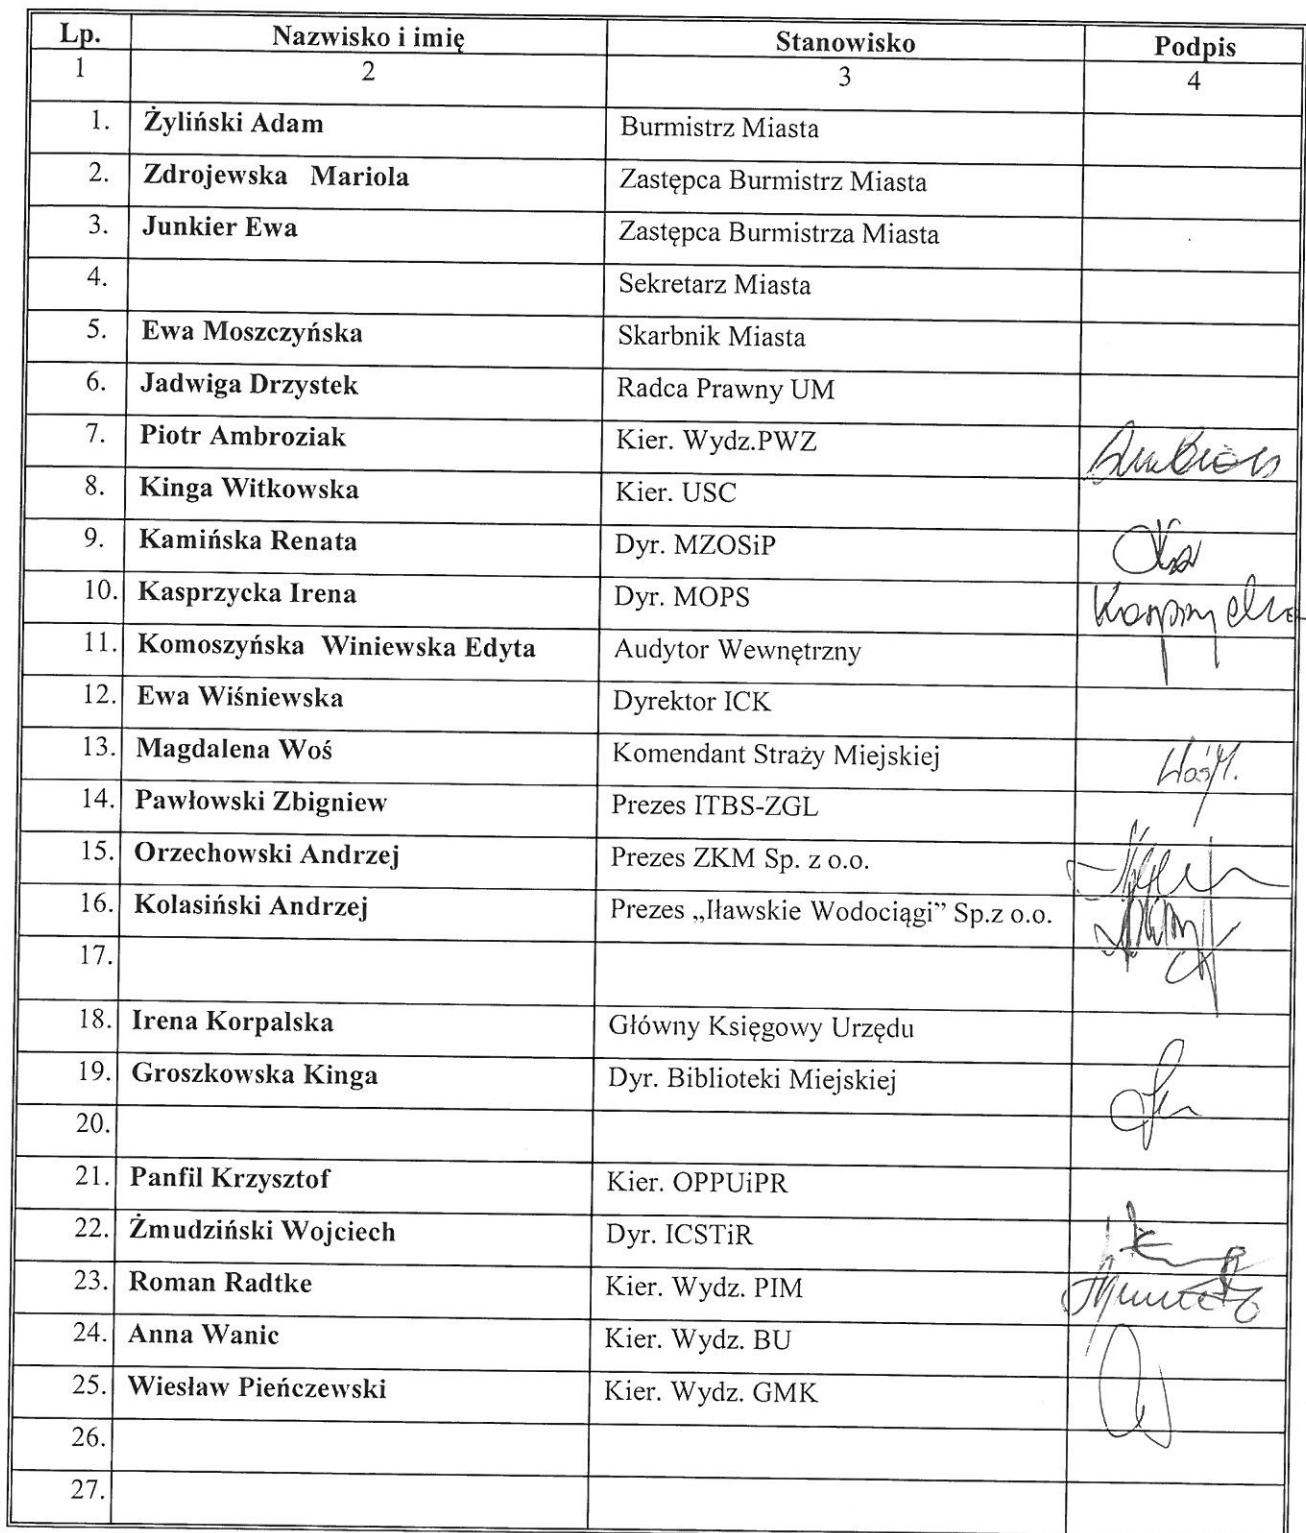 Lp. Nazwisko i imię Stanowisko Podpis
1 2 3 4
1. Żyliński Adam Burmistrz Miasta
2. Zdrojewska Mariola Zastępca Burmistrz Miasta
3. Junkier Ewa Zastępca Burmistrza Miasta
4. Sekretarz Miasta
5. Ewa Moszczyńska Skarbnik Miasta
6. Jadwiga Drzystek Radca Prawny UM
7. Piotr Ambroziak Kier. Wydz.PWZ
8. Kinga Witkowska Kier. USC
9. Kamińska Renata Dyr. MZOSiP
10. Kasprzycka Irena Dyr. MOPS
11. Komoszyńska Winiewska Edyta Audytor Wewnętrzny
12. Ewa Wiśniewska Dyrektor ICK
13. Magdalena Woś Komendant Straży Miejskiej Woś M.
14. Pawłowski Zbigniew Prezes ITBS-ZGL
15. Orzechowski Andrzej Prezes ZKM Sp. z o.o.
16. Kolasiński Andrzej Prezes „Iławskie Wodociągi” Sp.z o.o.
17.
18. Irena Korpalska Główny Księgowy Urzędu
19. Groszkowska Kinga Dyr. Biblioteki Miejskiej
20.
21. Panfil Krzysztof Kier. OPPUiPR
22. Żmudziński Wojciech Dyr. ICSTiR
23. Roman Radtke Kier. Wydz. PIM
24. Anna Wanic Kier. Wydz. BU
25. Wiesław Pieńczewski Kier. Wydz. GMK
26.
27.